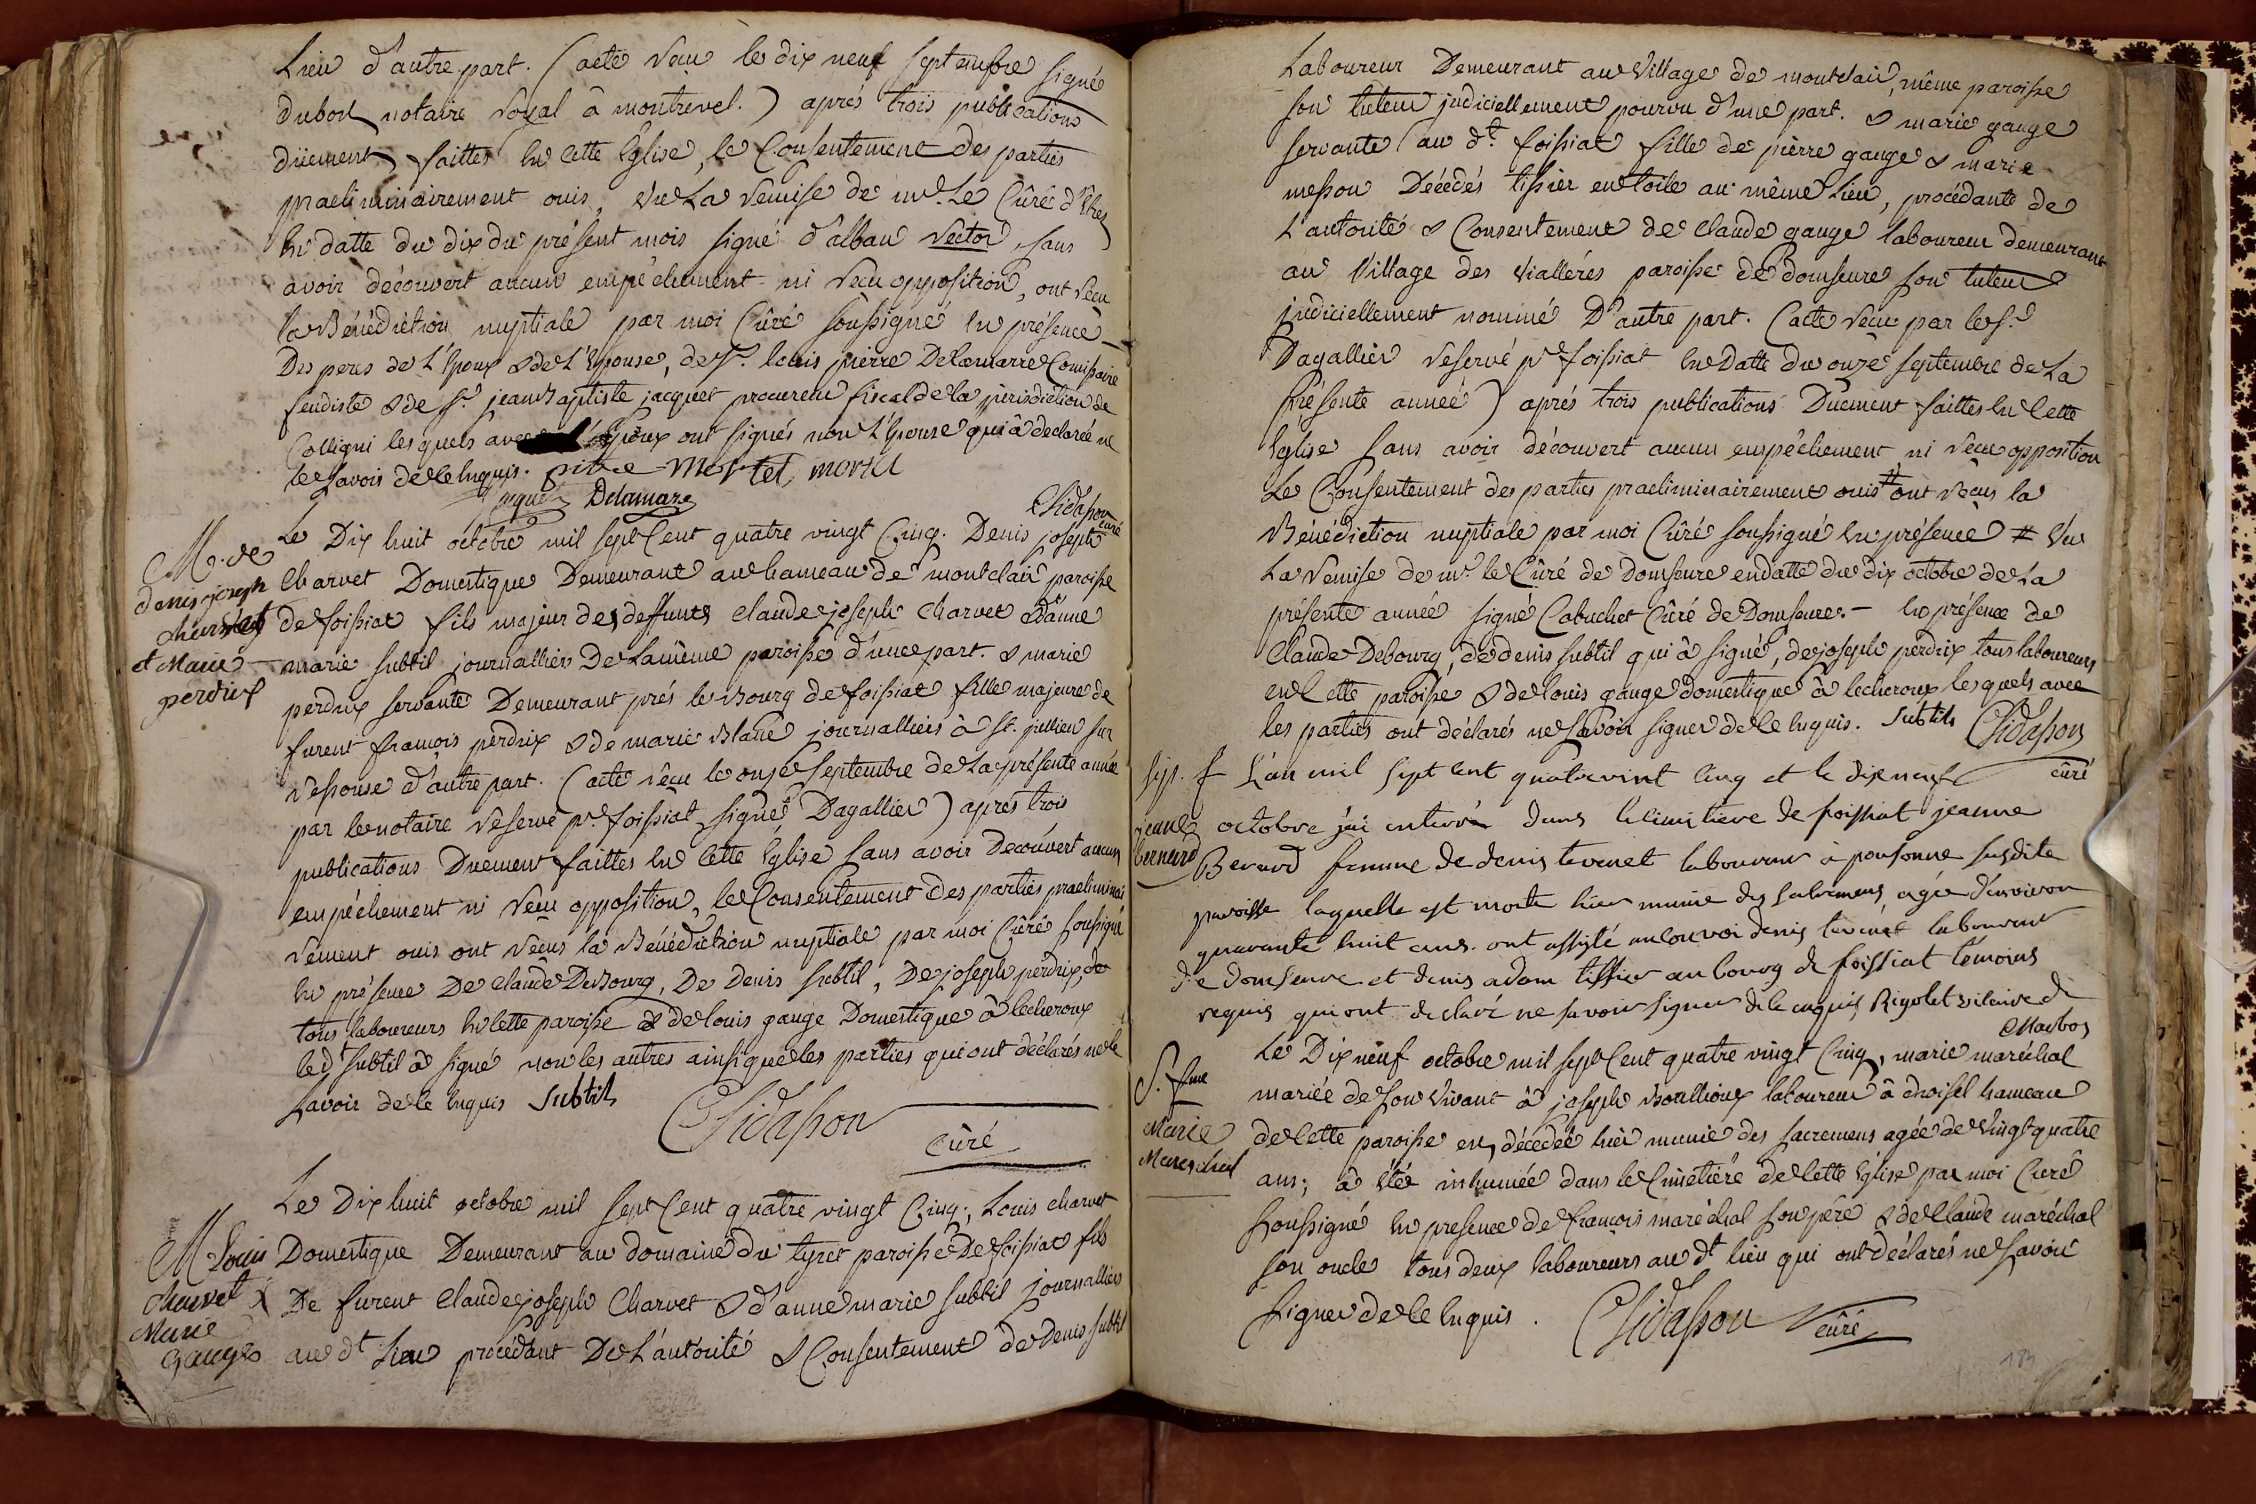 Lieu d'autre part. (acte reçu le dix neuf septembre signé
dubost notaire royal â montrevel.) aprés trois publications
düement faittes en cette Eglise, le Consentement des parties
praeliminairement ouis, vu La remise de mr. Le Cûré d'
en datte du dix du présent mois signé d'alban rector, sans
avoir découvert aucun empêchement ni recu opposition, ont reçu
la Bénédiction nuptiale par moi Cûré soussigné en présence
Des peres de L'Epoux & de L'Epouse, de Sr. louis pierre Delamarre Comissaire
feudiste & de Sr. jean Baptiste jacquet procureur fiscal de la jurisdiction de
Colligni lesquels avec l'Epoux ont signés non L'Epouse qui â declarée ne
le savoir de ce enquis. pierre Mortel mortel
jaquet Delamare Chidasson curé
Le Dix huit octobre mil sept Cent quatre vingt Cinq. Denis joseph
M. de
denis joseph
charvet
et Marie
perdrix
Charvet Domestique Demeurant au hameau de montclair paroisse
de foissiat fils majeur des deffunts claude joseph Charvet & d'anne
marie subtil journallier De La même paroisse d'une part. & marie
perdrix servante Demeurant prés le Bourg de foissiat fille majeure de
furent françois perdrix & de marie Blanc journalliers à St. jullien sur
ressouse d'autre part. (acte réçu le onze septembre de La présente année
par le notaire réservé pr. foissiat signé Dagallier) aprés trois
publications Duement faittes en cette Eglise sans avoir Decouvert aucun
empêchement ni reçu opposition, le Consentement des parties praeliminai
rement ouis ont reçus la Bénédiction nuptiale par moi Cûré soussigné
en présence De claude DeBourg, De Denis subtil, De joseph perdrix,
tous laboureurs en cette paroisse & de louis gauge Domestique â lecheroux
led't subtil â signé non les autres ainsi que les parties qui ont déclarés ne le
savoir de ce enquis subtil
Chidasson
cûré
Le Dix huit octobre mil sept Cent quatre vingt Cinq, Louis charvet
M. Louis
charvet &
Marie
Gauge
Domestique Demeurant au domaine du tyret paroisse De foissiat fils
De furent claude joseph Charvet & d'anne marie subtil journalliers
au dt Lieu procédant De L'autorité & Consentement de Denis subtil
Laboureur Demeurant au Village de montclair, même paroisse
son tuteur judiciellement pourvu d'une part. & marie gauge
servante au dt. foissiat fille de pierre gauge & marie
messon Décédés tissier en toile au même Lieu, procédante de
L'autorité & Consentement de claude gauge laboureur demeurant
au Village des viallères paroisse de domseure son tuteur
judiciellement nommé D'autre part. (acte reçu par le sr.
Dagallier réservé pr foissiat en Datte du onze septembre de La
présente année) aprés trois publications Duement faittes en cette
Eglise sans avoir découvert aucun empêchement ni reçu opposition
Le Consentement des parties praeliminairement ouis # ont reçus la
Bénédiction nuptiale par moi Cûré soussigné en présence # Vu
La remise de mr. le Cûré de Domseure en datte du dix octobre de La
présente année signé Cabuchet Cûré de Domseure. – en présence de
Claude Debourg, de denis subtil qui â signé, de joseph perdrix tous laboureurs
en Cette paroisse & de louis gauge domestique â lecheroux lesquels avec
les parties ont déclarés ne savoir signer de ce enquis. Subtil Chidasson
cûré
sep. f
jeane
bernard
L'an mil sept cent quatre vint cinq et le dix neuf
octobre j'ai enterré dans le cimetiere de foissiat jeanne
Berard femme de denis tevenet laboureur à ponsonne susdite
paroisse laquelle est morte hier munie des sacremens agée d'environ
quarante huit ans. ont assisté au convoi denis tevenet laboureur
de domseure et denis adam tissier au bourg de foissiat témoins
requis qui ont declaré ne savoir signer de ce enquis Rigolet vicaire de
Marbos
Le Dix neuf octobre mil sept Cent quatre vingt Cinq, marie maréchal
S. fme
Marie
Mareschal
mariée de son Vivant â joseph Bouillioux laboureur â choisel hameau
de cette paroisse et décedée hièr munie des sacremens agée de Vingt quatre
ans; â été inhumée dans le Cimétiére de cette Eglise par moi Curé
soussigné en presence de françois maréchal son pére & de Claude maréchal
son oncle tous deux laboureurs au dt lieu qui ont déclarés ne savoir
signer de ce enquis. Chidasson
cûré